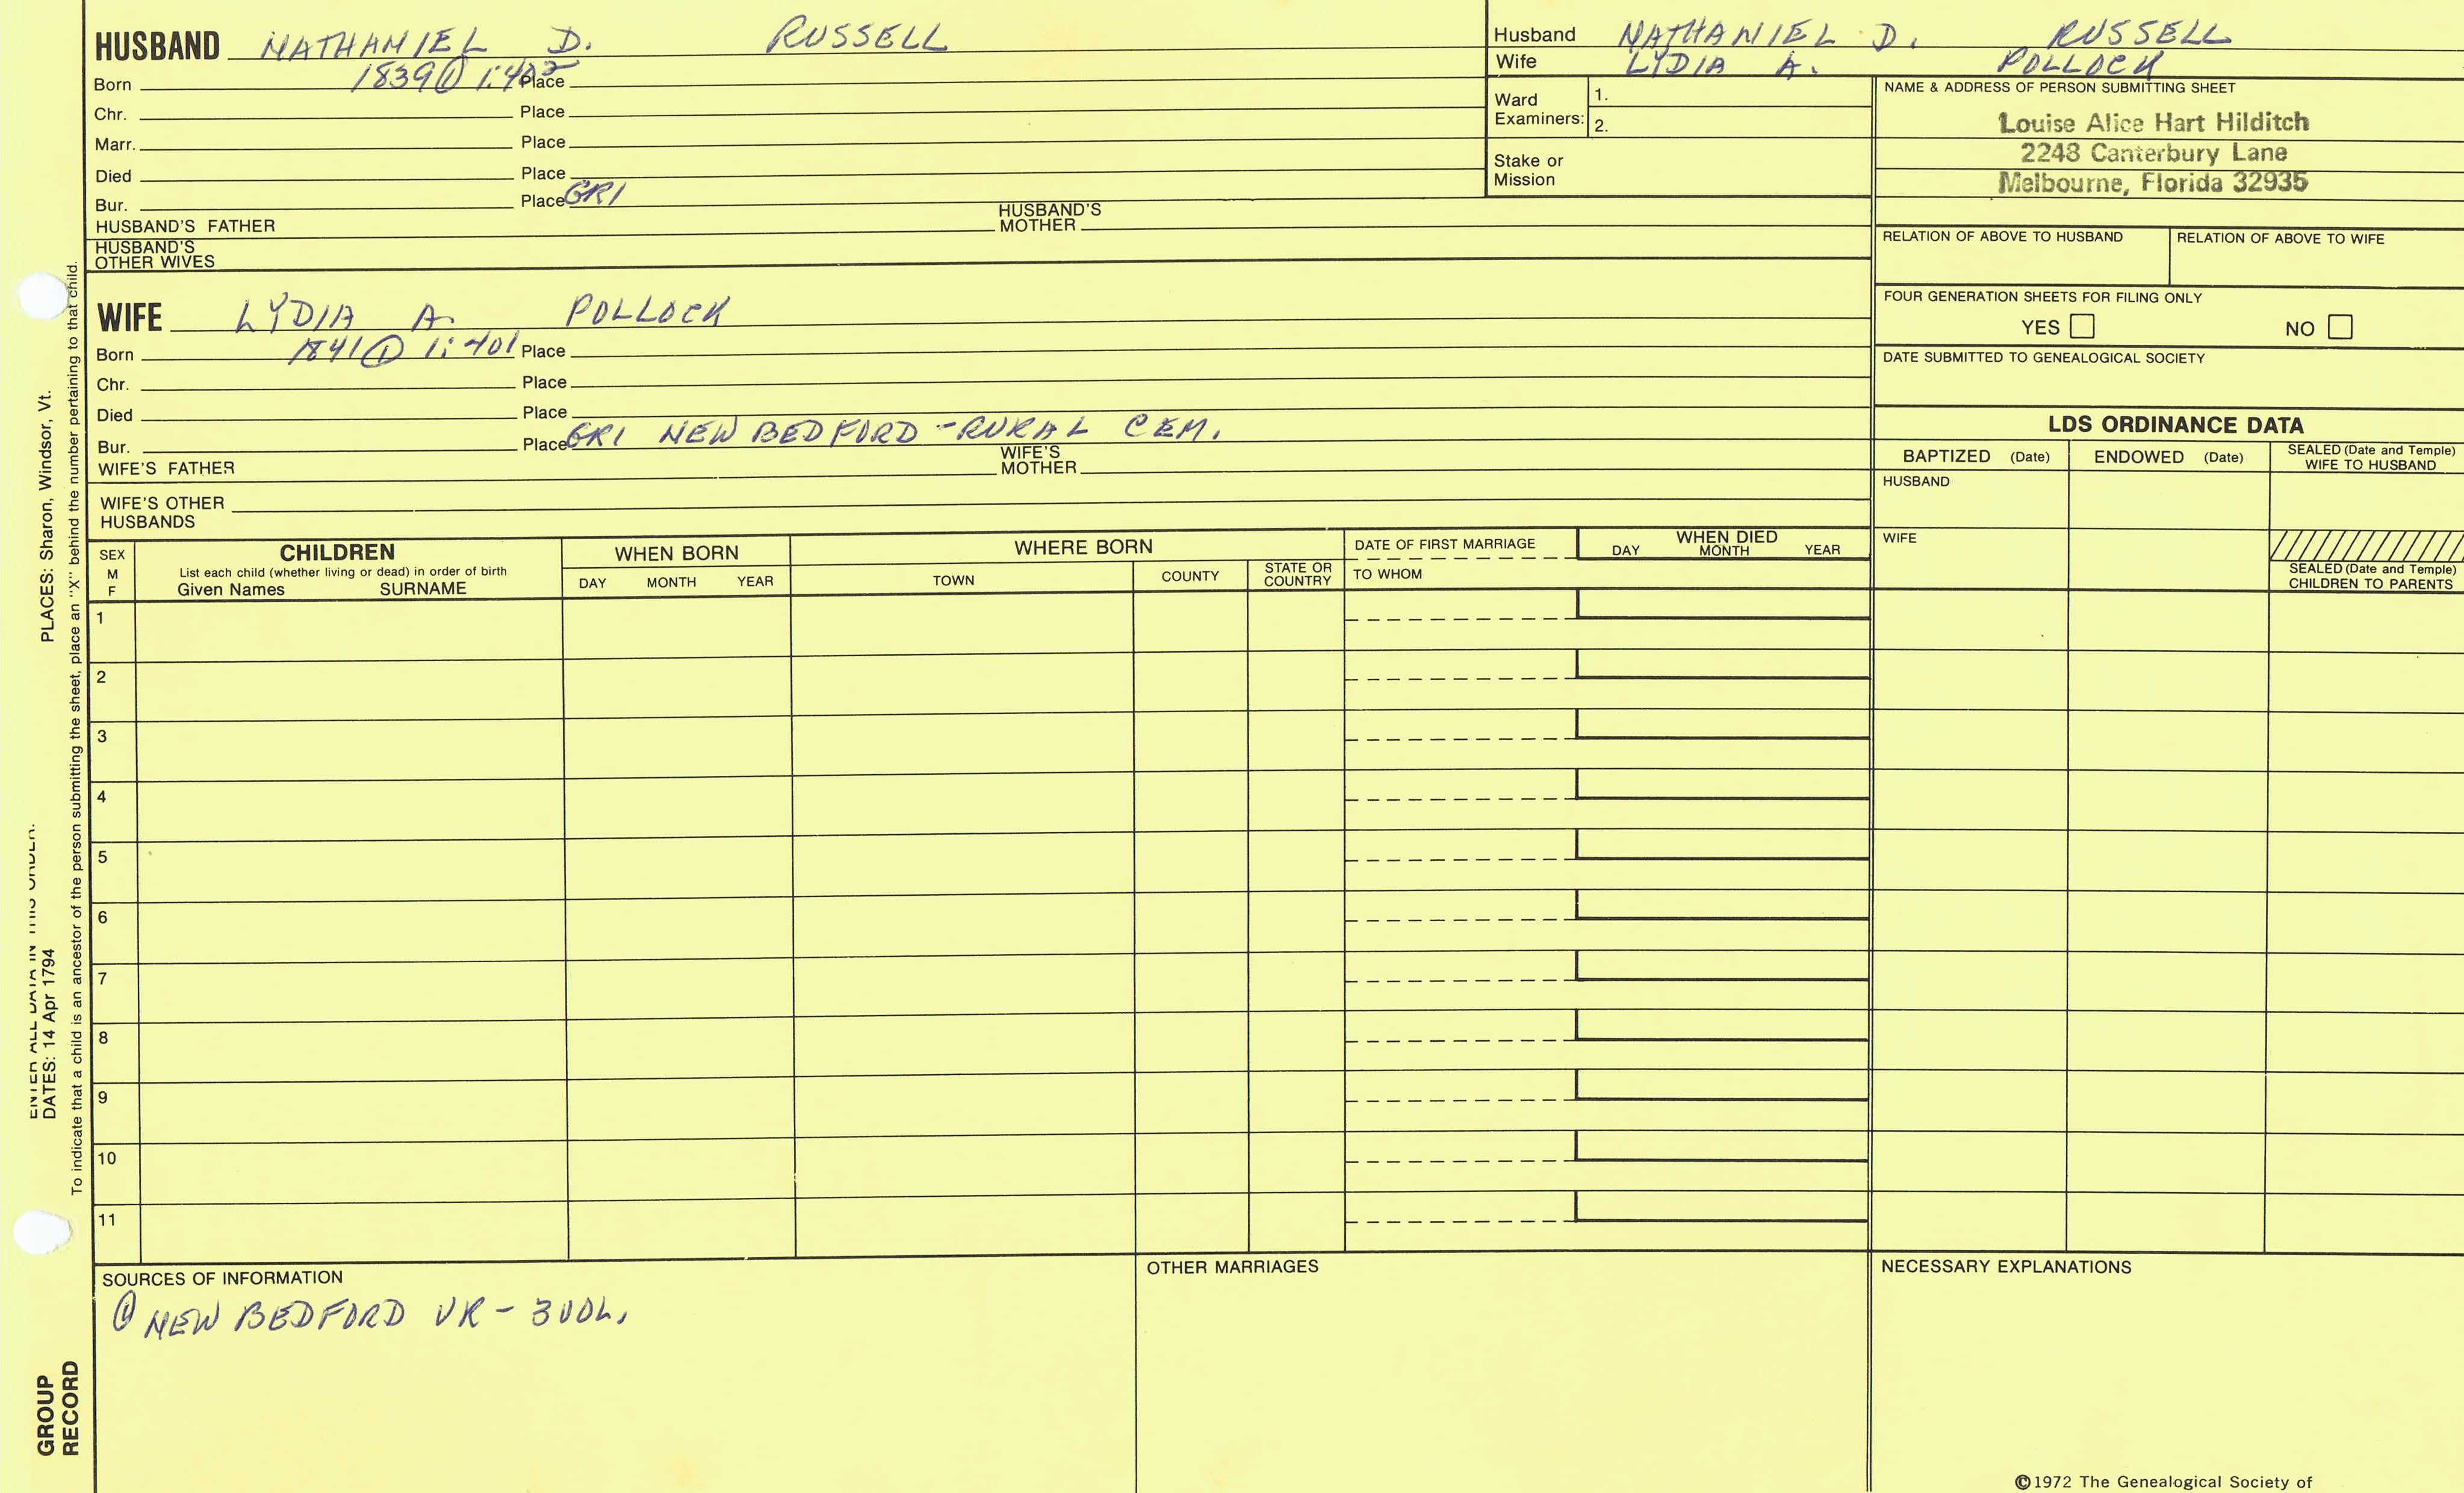 HUSBAND NATHANIEL D. RUSSELL
Born 1839 ① 1:402 Place
Chr. Place
Marr. Place
Died Place
Bur. Place GRI
HUSBAND'S FATHER HUSBAND'S MOTHER
HUSBAND'S OTHER WIVES
Husband NATHANIEL D. RUSSELL
Wife LYDIA A. POLLOCK
Ward Examiners: 1.
2.
Stake or Mission
NAME & ADDRESS OF PERSON SUBMITTING SHEET
Louise Alice Hart Hilditch
2248 Canterbury Lane
Melbourne, Florida 32935
RELATION OF ABOVE TO HUSBAND RELATION OF ABOVE TO WIFE
FOUR GENERATION SHEETS FOR FILING ONLY
YES NO
DATE SUBMITTED TO GENEALOGICAL SOCIETY
WIFE LYDIA A. POLLOCK
Born 1841 ① 1:401 Place
Chr. Place
Died Place
Bur. Place GRI NEW BEDFORD - RURAL CEM.
WIFE'S FATHER WIFE'S MOTHER
WIFE'S OTHER HUSBANDS
LDS ORDINANCE DATA
BAPTIZED (Date) ENDOWED (Date) SEALED (Date and Temple) WIFE TO HUSBAND
HUSBAND
WIFE
SEALED (Date and Temple) CHILDREN TO PARENTS
SEX
M
F
CHILDREN
List each child (whether living or dead) in order of birth
Given Names SURNAME
WHEN BORN
DAY MONTH YEAR
WHERE BORN
TOWN COUNTY STATE OR COUNTRY
DATE OF FIRST MARRIAGE
TO WHOM
WHEN DIED
DAY MONTH YEAR
1
2
3
4
5
6
7
8
9
10
11
SOURCES OF INFORMATION
① NEW BEDFORD VR - 3 VOL.
OTHER MARRIAGES
NECESSARY EXPLANATIONS
©1972 The Genealogical Society of
ENTER ALL DATA IN THIS ORDER.
DATES: 14 Apr 1794 PLACES: Sharon, Windsor, Vt.
To indicate that a child is an ancestor of the person submitting the sheet, place an "X" behind the number pertaining to that child.
GROUP
RECORD